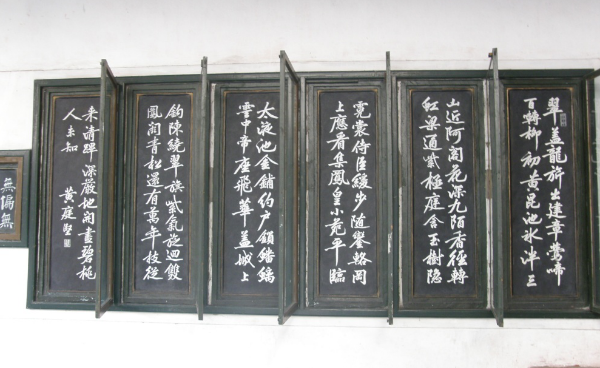 翠蓋龍旂出建章鶯啼
百轉柳初黃昆池冰泮三
山近阿閣花深九陌香徑轉
虹梁通紫極庭含玉樹隱
霓裳侍臣緩步隨鑾輅岡
上應看集鳳皇小苑平臨
太液池金鋪約戶鎖蟠螭
雲中帝座飛華蓋城上
鉤陳繞翠旗紫氣旋迴雙
鳳闕青松還有萬年枝從
來清蹕深嚴地開盡碧桃
人未知 黃庭堅
無偏無